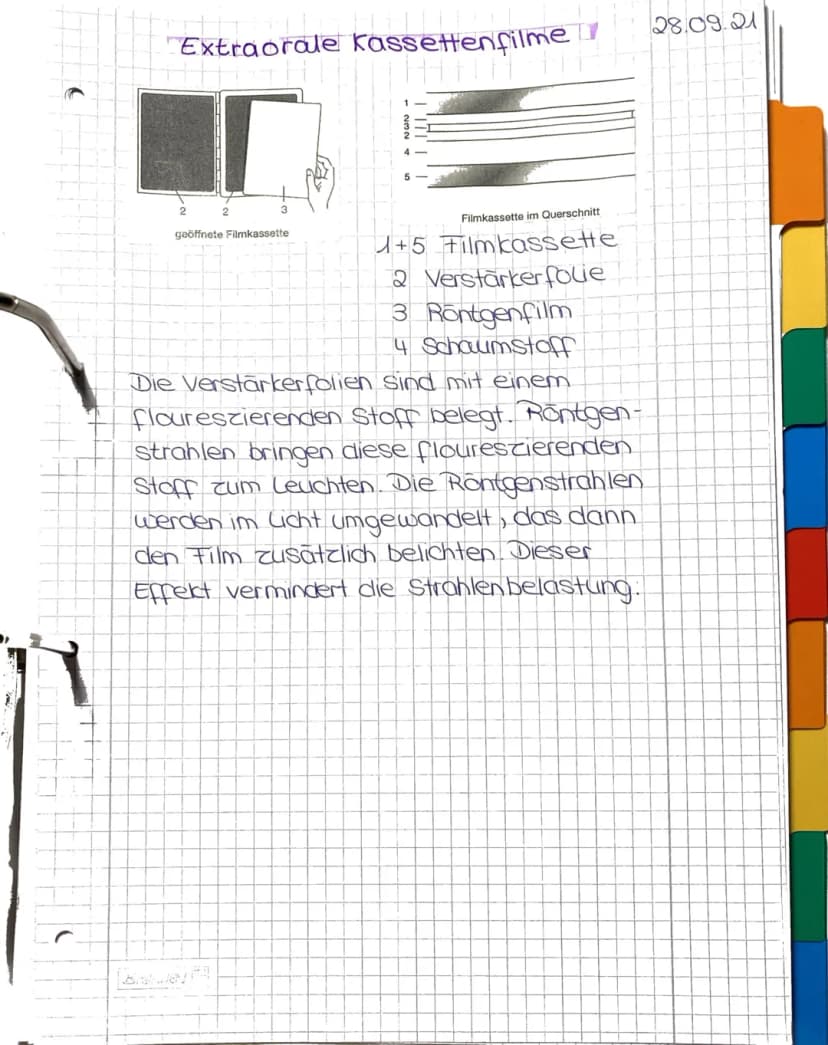 Extraorale Kassettenfilme
28.09.21
1
2
3
2
4
5
2 2 3
geöffnete Filmkassette
Filmkassette im Querschnitt
1+5 Filmkassette
2 Verstärkerfolie
3 Röntgenfilm
4 Schaumstoff
Die Verstärkerfolien sind mit einem
floureszierenden Stoff belegt. Röntgen-
strahlen bringen diese floureszierenden
Stoff zum Leuchten. Die Röntgenstrahlen
werden im Licht umgewandelt, das dann
den Film zusätzlich belichten. Dieser
Effekt vermindert die Strahlenbelastung.